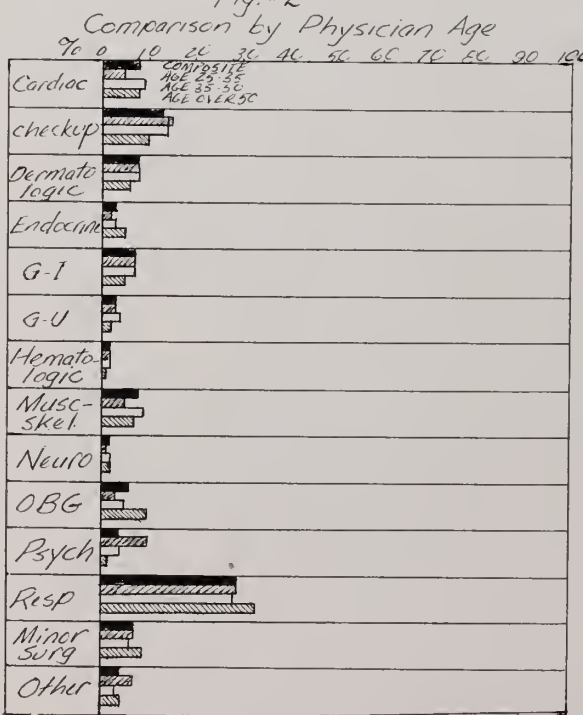 Fig. 2
Comparison by Physician Age
% 0 10 20 30 40 50 60 70 80 90 100
Cardiac
COMPOSITE
AGE 25-35
AGE 35-50
AGE OVER 50
checkup
Dermato
logic
Endocrine
G-I
G-U
Hemato-
logic
Musc-
skel.
Neuro
OBG
Psych
Resp
Minor
Surg
Other